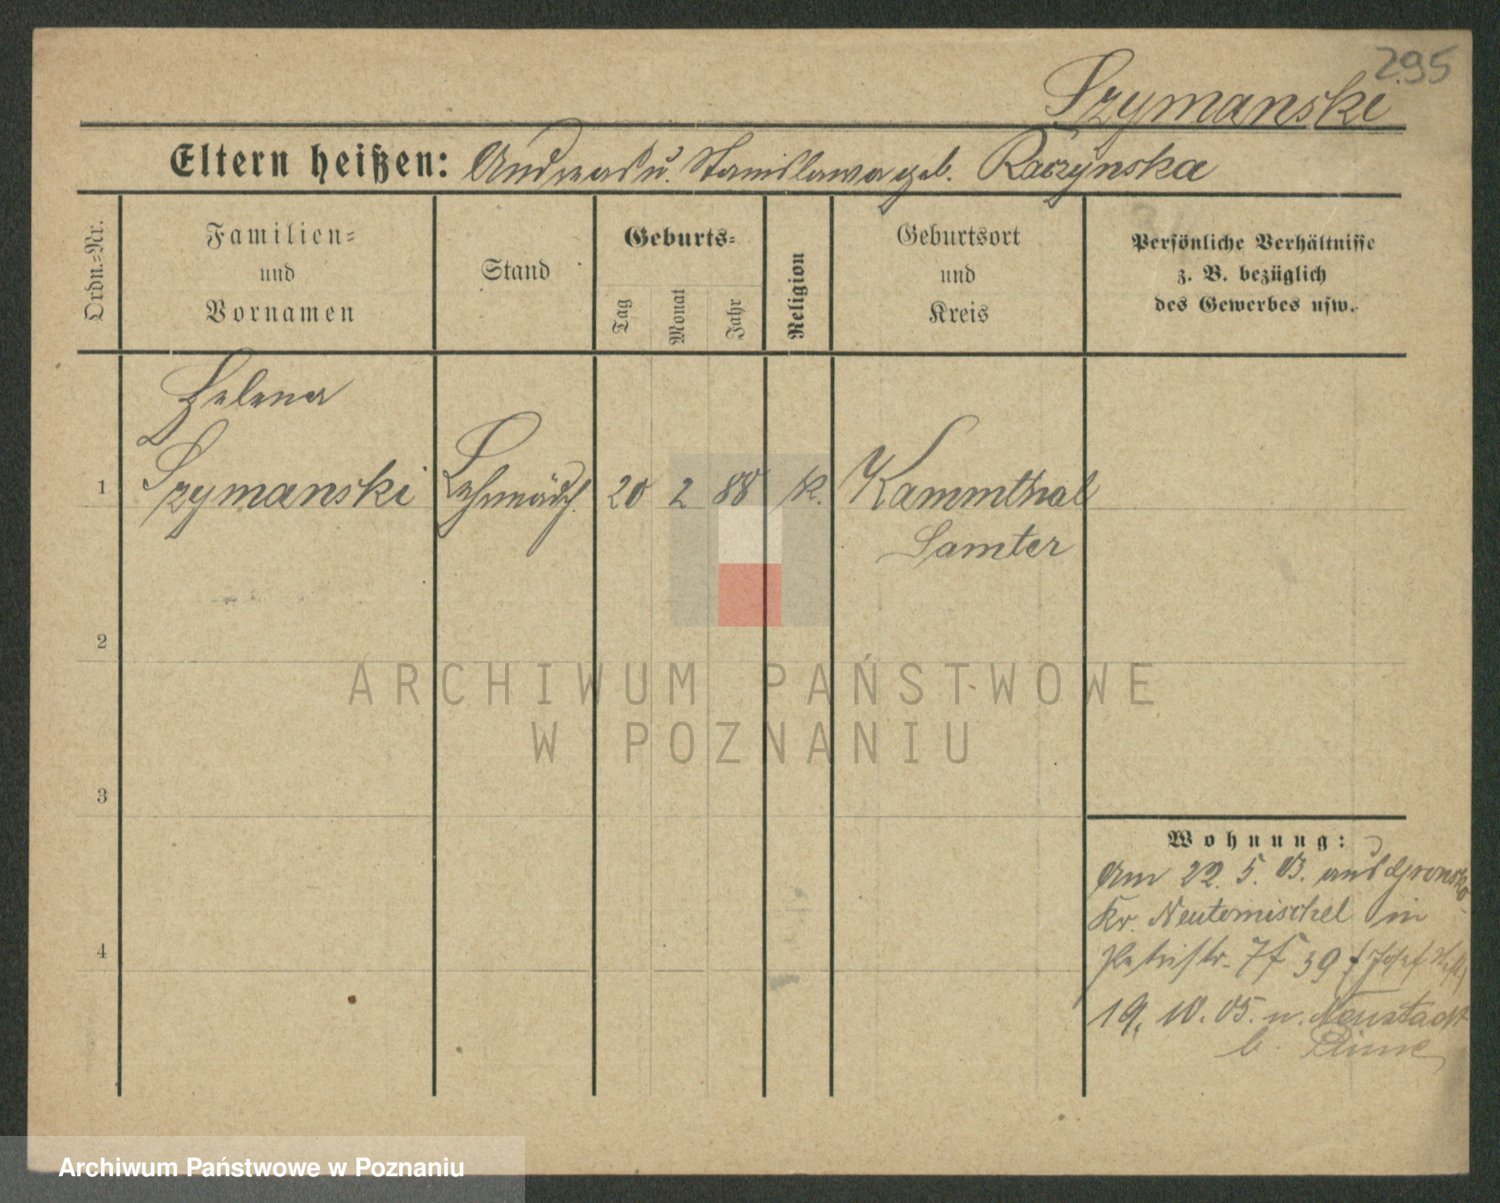 295
Szymanski
Eltern heißen: Andreas u. Stanislawa geb. Raczynska
Ordn.=Nr.
Familien=
und
Vornamen
Stand
Geburts=
Tag
Monat
Jahr
Religion
Geburtsort
und
Kreis
Persönliche Verhältnisse
z. B. bezüglich
des Gewerbes usw.
Helena
1 Szymanski Lehrmädch. 20 2 88 K. Kammthal
Samter
2
3
4
Wohnung:
Am 22. 5. 03. aus Gronsko
Kr. Neutomischel in
Petristr. 7 f 39 Josef
19. 10. 05. n. Neustadt
b. Pinne
ARCHIWUM PAŃSTWOWE
W POZNANIU
Archiwum Państwowe w Poznaniu